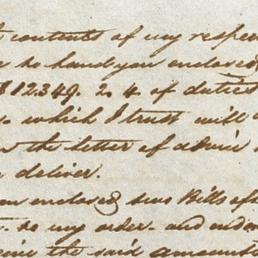 contents of my respe
to hand you enclosed
12349. 2. 4. of duties
which I trust will
the letter of advice
deliver.
enclosed two Bills of
to my order and
the said amount